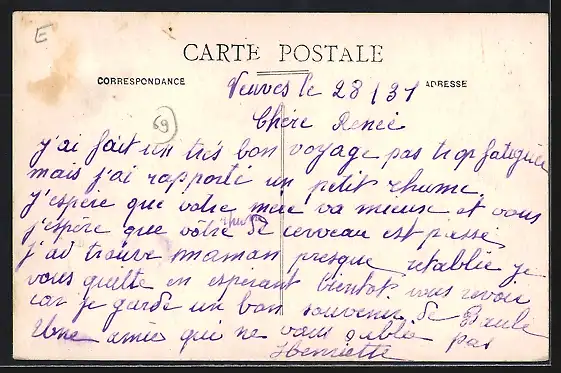 E
CARTE POSTALE
CORRESPONDANCE
ADRESSE
Veuves le 28/31
69
Chère Renée
j'ai fait un très bon voyage pas trop fatiguée
mais j'ai rapporté un petit rhume.
j'espère que votre mère va mieux et vous
j'espère que vôtre rhume de cerveau est passé
j'ai trouvé maman presque rétablie je
vous quitte en espérant bientôt vous revoir
car je garde un bon souvenir de Baule
Une amie qui ne vous oublie pas
Henriette